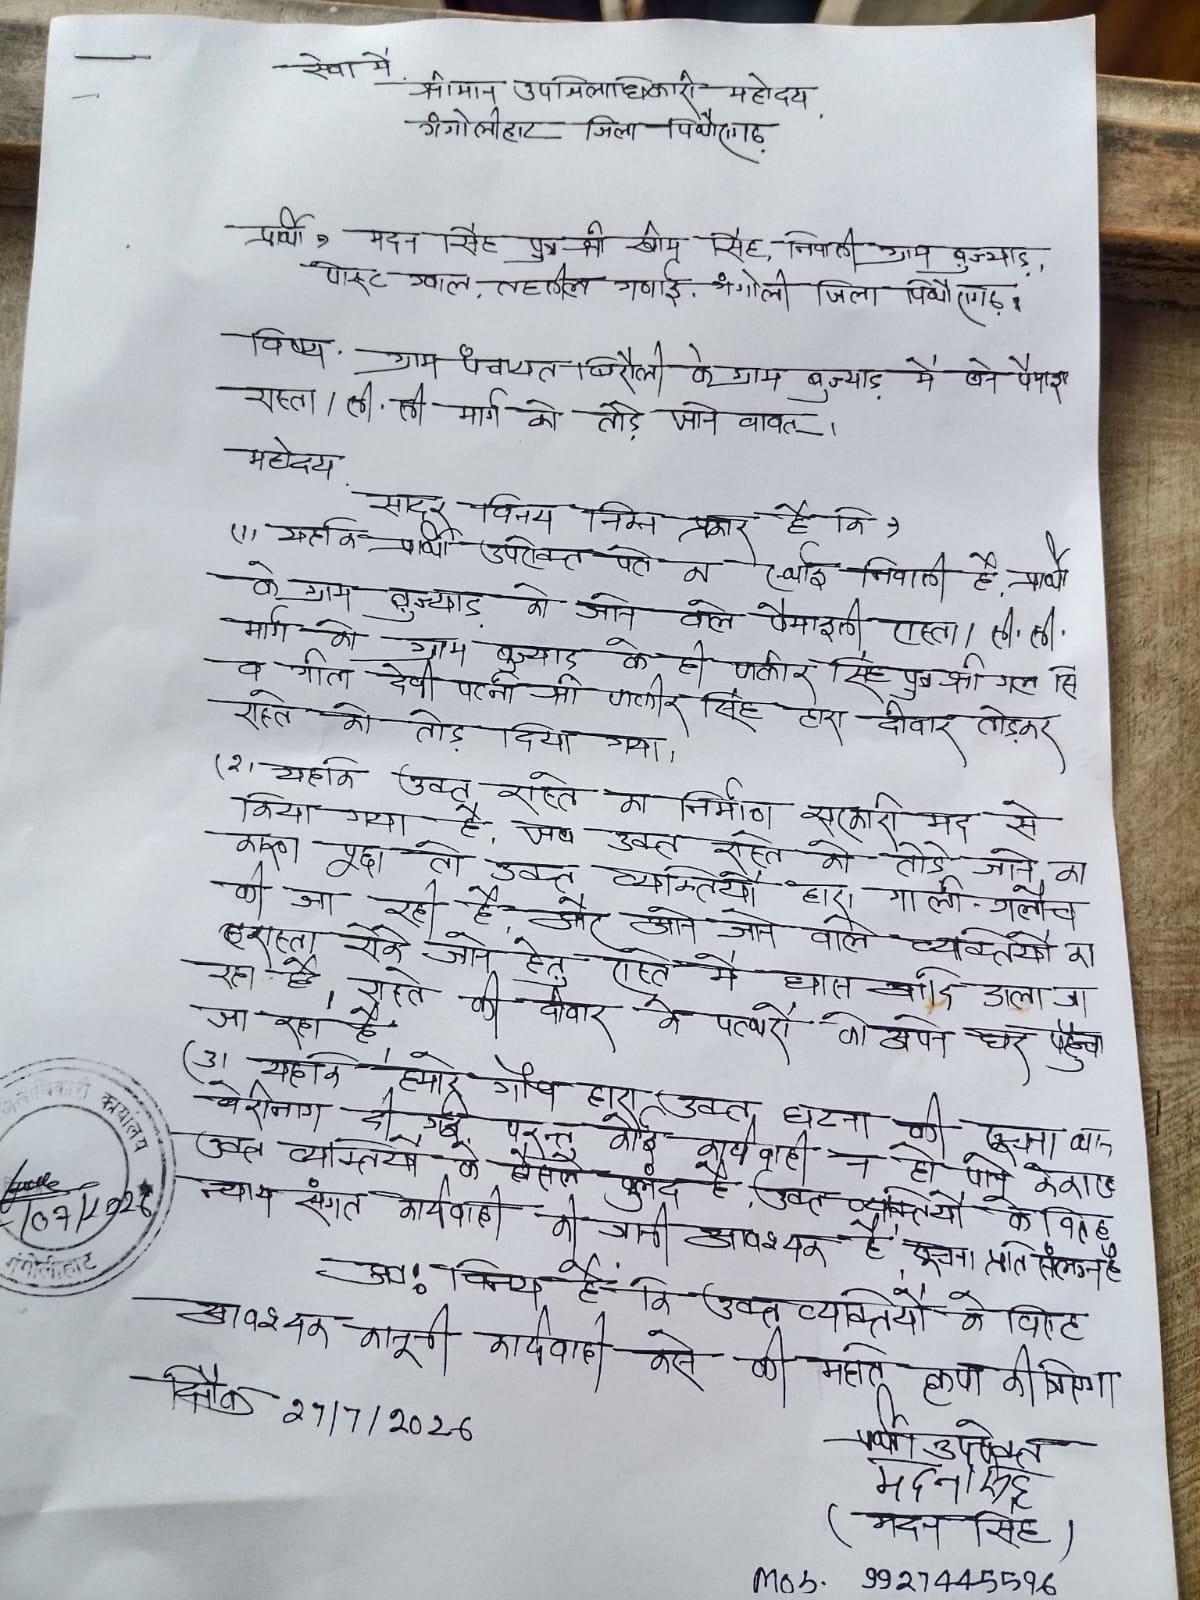 सेवा में,
श्रीमान उपजिलाधिकारी महोदय,
गंगोलीहाट जिला पिथौरागढ़
प्रार्थी, मदन सिंह पुत्र श्री खीम सिंह, निवासी ग्राम बुज्याड़,
पोस्ट ग्वाल, तहसील गणाई गंगोली जिला पिथौरागढ़।
विषय- ग्राम पंचायत बिरौली के ग्राम बुज्याड़ में बने पैमाइश
रास्ता / सी.सी मार्ग को तोड़े जाने बावत।
महोदय,
सादर विनय निम्न प्रकार है कि,
(1) यहकि प्रार्थी उपरोक्त पते का स्थाई निवासी है, प्रार्थी
के ग्राम बुज्याड़ को जाने वाले पैमाइसी रास्ता / सी.सी.
मार्ग को ग्राम बुज्याड़ के ही सिंह पुत्र श्री
व देवी पत्नी श्री सिंह द्वारा दीवार तोड़कर
रास्ते को तोड़ दिया गया।
(2) यहकि उक्त रास्ते का निर्माण सरकारी मद से
किया गया है, जब उक्त रास्ते को तोड़े जाने का
कारण पूछा तो उक्त व्यक्तियों द्वारा गाली-गलौच
की जा रही है, और आने जाने वाले व्यक्तियों का
रास्ता रोके जाने हेतु रास्ते में घास आदि डाला जा
रहा है, रास्ते की दीवार के पत्थरों को अपने घर पहुंचा
जा रहा है।
(3) यहकि हमारे गाँव द्वारा उक्त घटना की सूचना थाना
बेरीनाग दी गई परन्तु कोई कार्यवाही न हो पाने के कारण
उक्त व्यक्तियों के हौसले बुलंद है, उक्त व्यक्तियों के विरुद्ध
न्याय संगत कार्यवाही की जानी आवश्यक है, सूचना प्रति संलग्न है
अतः विनय है कि उक्त व्यक्तियों के विरुद्ध
आवश्यक कानूनी कार्यवाही करने की महति कृपा कीजिएगा
दिनाँक 27/7/2026
प्रार्थी उपरोक्त
मदन सिंह
(मदन सिंह)
Mob. 9927445596
कार्यालय
/07/2026
गंगोलीहाट